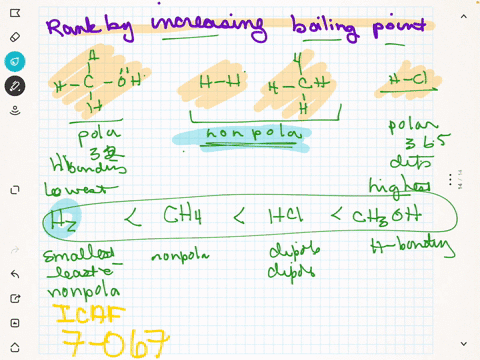 Rank by increasing boiling point
H
H-C-ÖH
H
H-H
H
H-C-H
H
H-Cl
polar
32
H bonding
lowest
nonpola
polar
36.5
highest
H2 < CH4 < HCl < CH3OH
smallest
least e-
nonpola
nonpola
dipole
dipole
H-bonding
ICAF
7-067